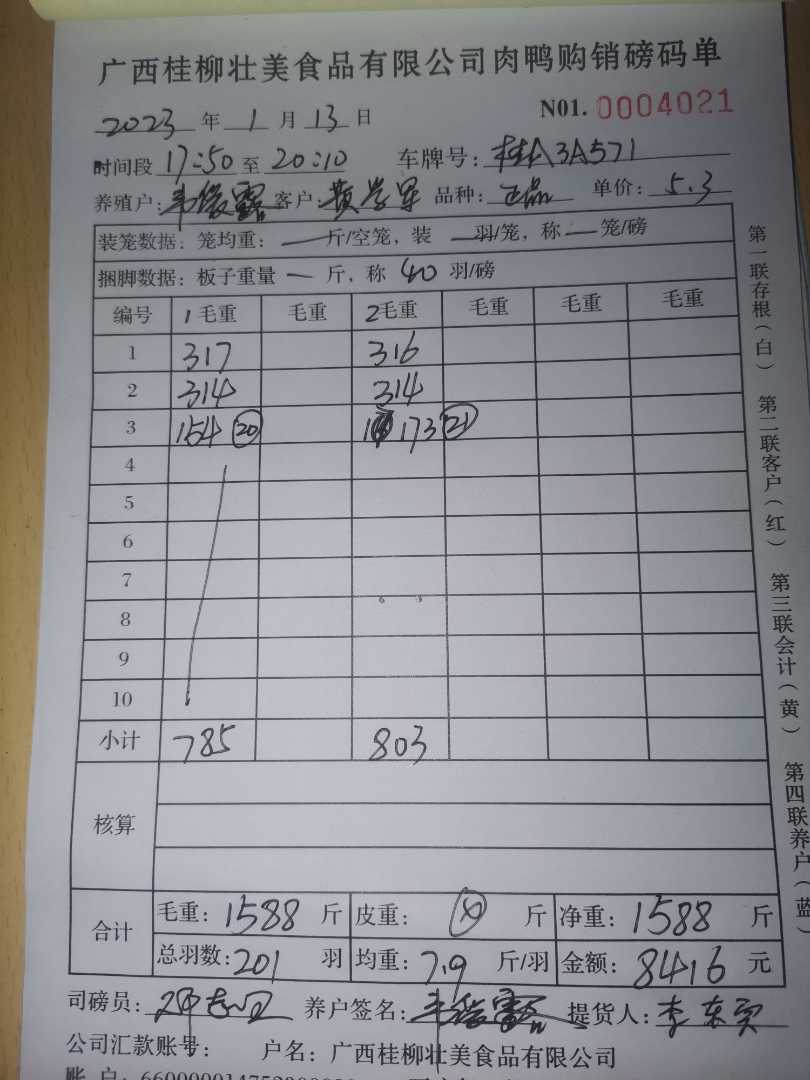 广西桂柳壮美食品有限公司肉鸭购销磅码单
2023 年 1 月 13 日 N01. 0004021
时间段 17:50 至 20:10 车牌号: 桂A3A571
养殖户: 客户: 黄学军 品种: 正品 单价: 5.3
装笼数据: 笼均重: — 斤/空笼, 装 — 羽/笼, 称 — 笼/磅
捆脚数据: 板子重量 — 斤, 称 40 羽/磅
编号 1毛重 毛重 2毛重 毛重 毛重 毛重
1 317 316
2 314 314
3 154 20 173 21
4
5
6
7
8
9
10
小计 785 803
核算
合计 毛重: 1588 斤 皮重: 斤 净重: 1588 斤
总羽数: 201 羽 均重: 7.9 斤/羽 金额: 8416 元
司磅员: 养户签名: 提货人: 李东实
公司汇款账号: 户名: 广西桂柳壮美食品有限公司
账 户:
第一联存根(白) 第二联客户(红) 第三联会计(黄) 第四联养户(蓝)